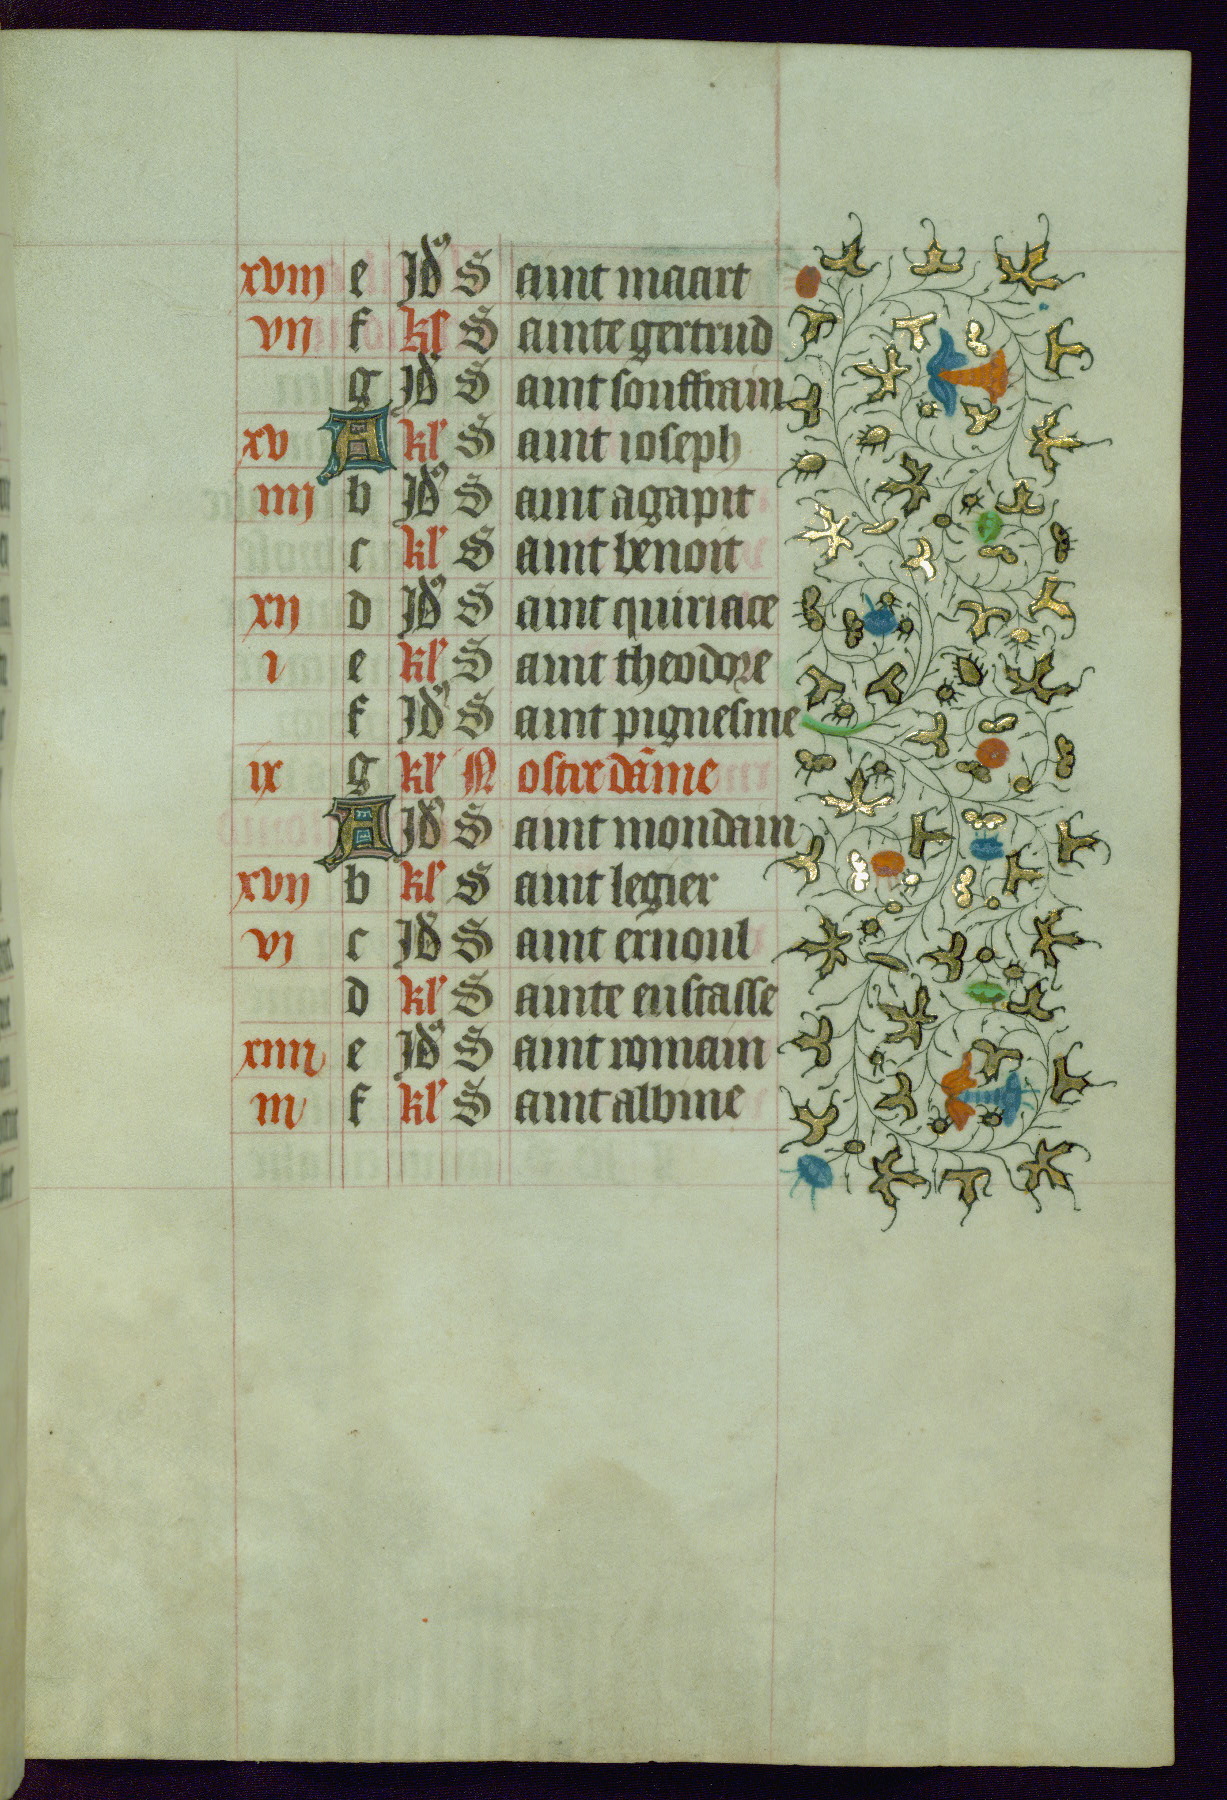 xviii e Id9 S aint maart
vii f kl S ainte gertrud
g Id9 S aint souffrain
xv A kl S aint ioseph
iiii b Id9 S aint agapit
c kl S aint benoit
xii d Id9 S aint quiriace
i e kl S aint theodore
f Id9 S aint pignesme
ix g kl N ostre dāme
A Id9 S aint mondain
xvii b kl S aint legier
vi c Id9 S aint ernoul
d kl S ainte eustasse
xiiii e Id9 S aint romain
iii f kl S aint albine